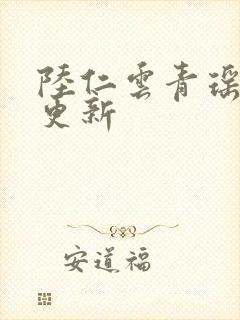 陸仁雲青瑶
更新
安道福